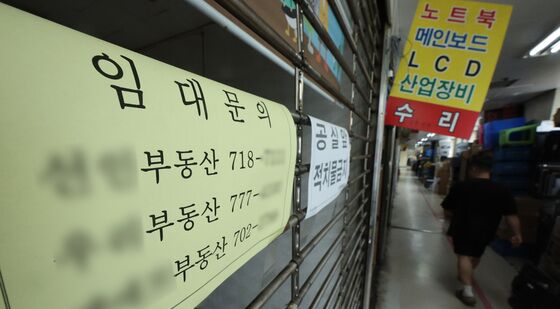 임대문의
부동산 718-
부동산 777-
부동산 702-
공실앞
적치물금지
노트북
메인보드
LCD
산업장비
수리